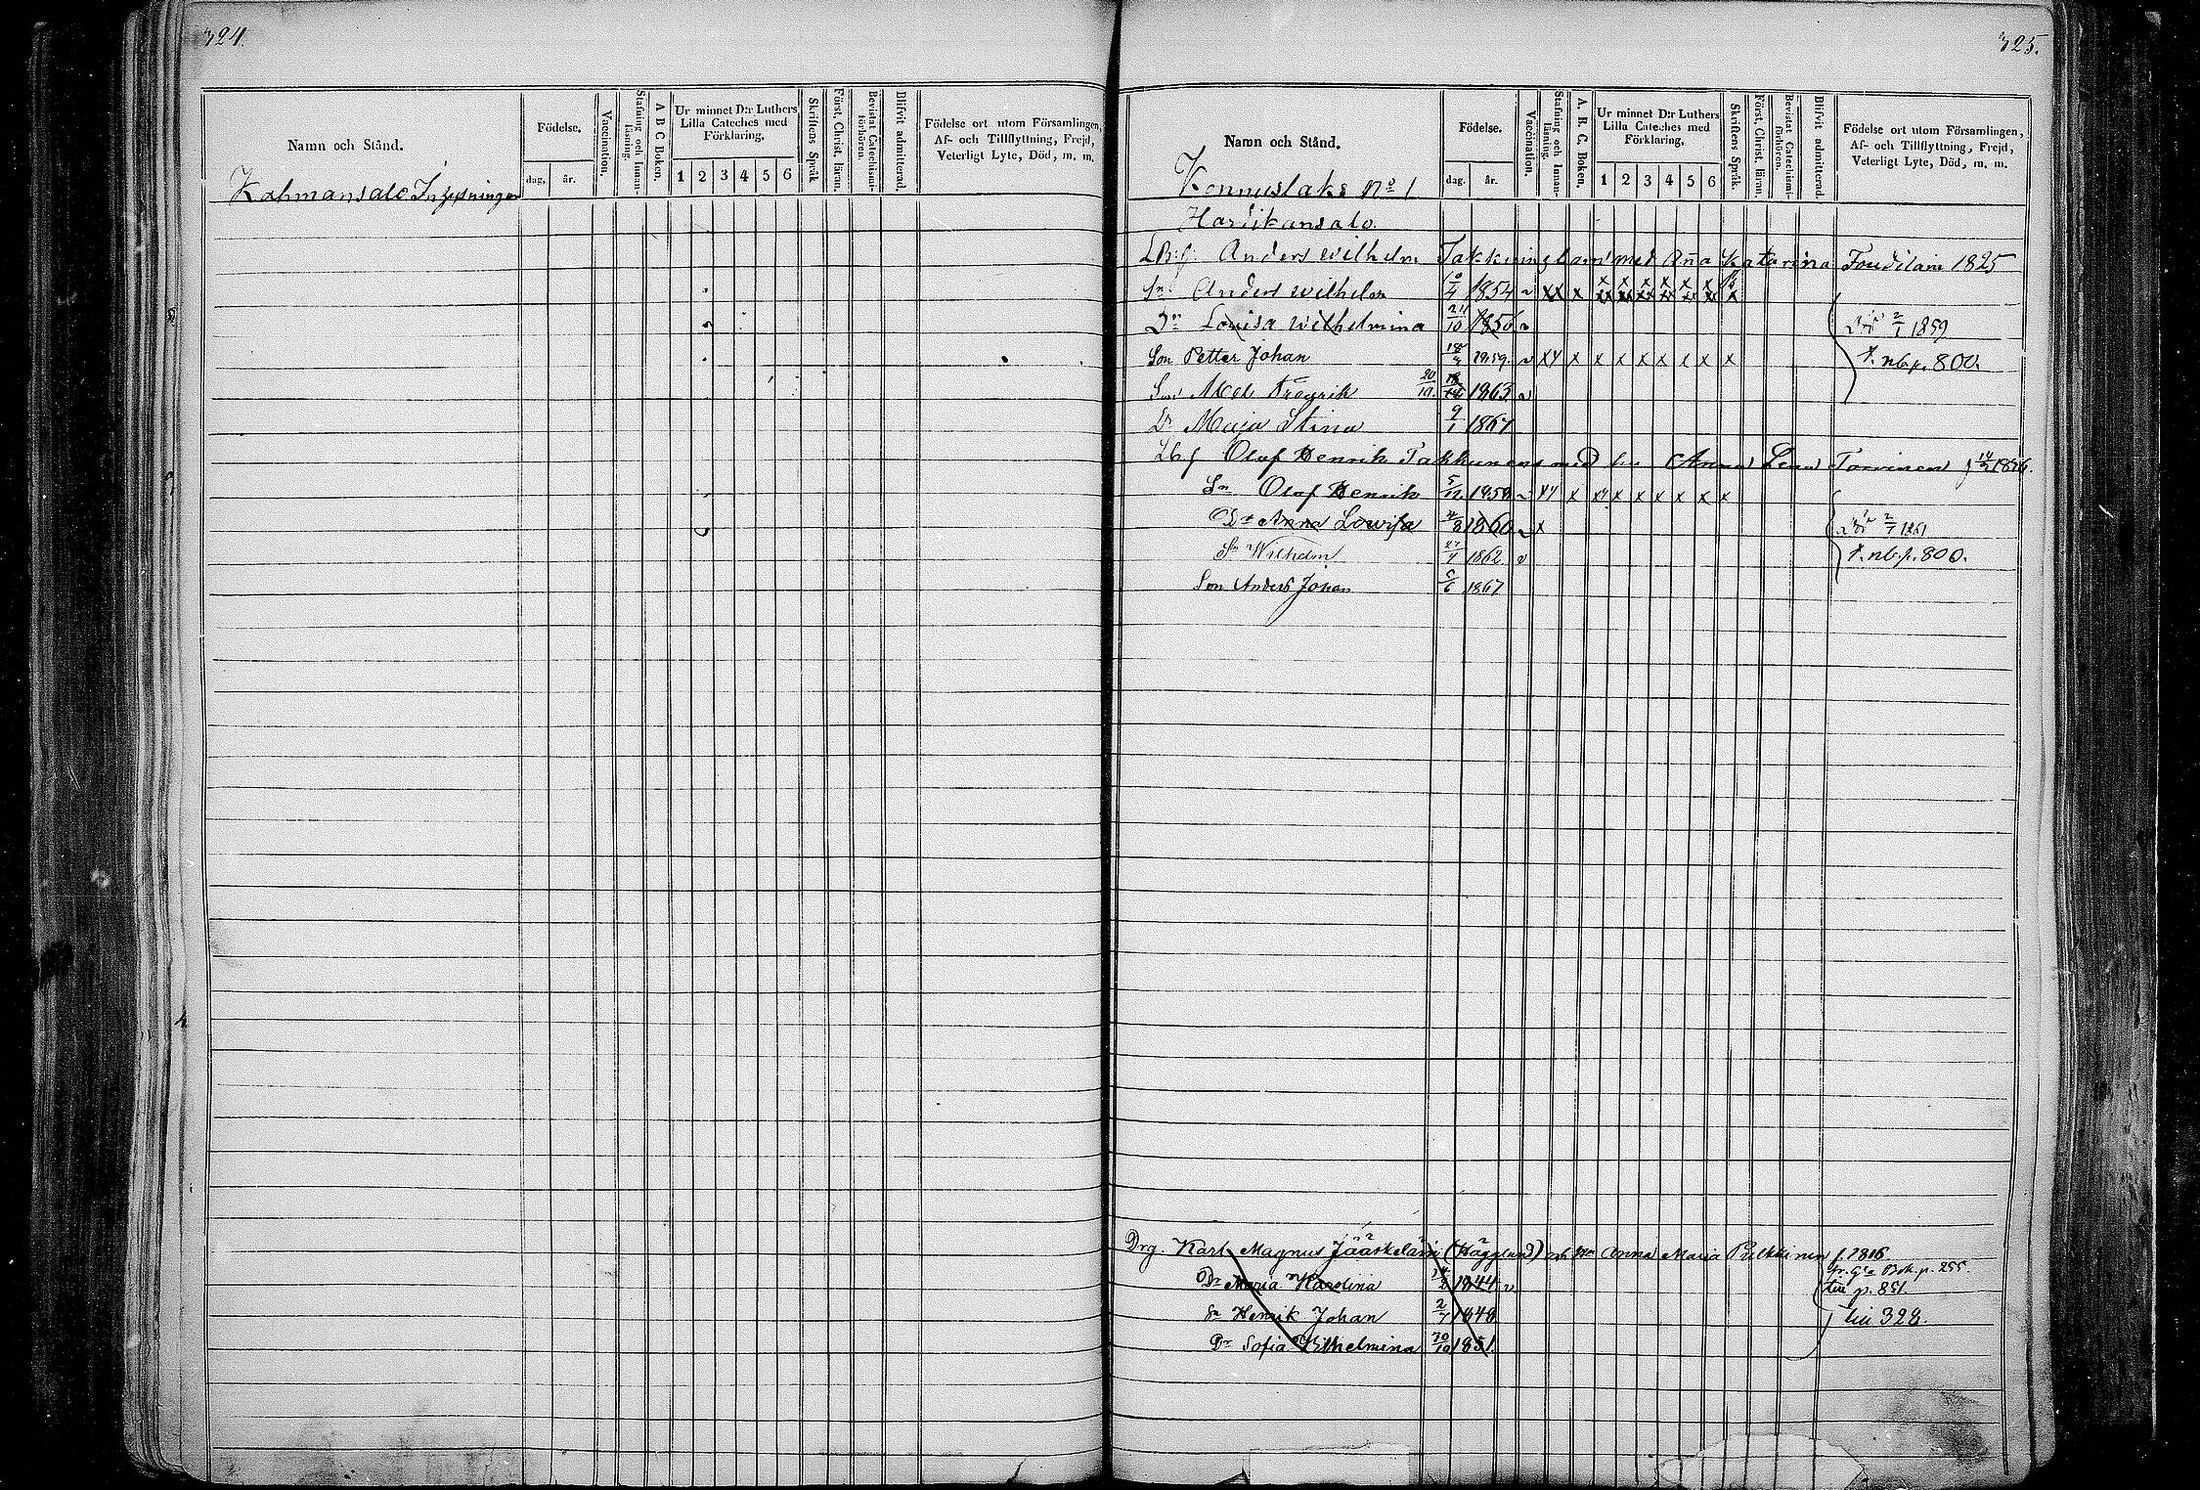 324.
Namn och Stånd.
Födelse.
dag. år.
Vaccination.
Stafning och Innan-läsning.
A B C Boken.
Ur minnet D:r Luthers Lilla Cateches med Förklaring.
1 2 3 4 5 6
Skriftens Språk
Först. Christ. läran.
Bevistat Catechismi-förhören.
Blifvit admitterad.
Födelse ort utom Församlingen, Af- och Tillflyttning, Frejd, Veterligt Lyte, Död, m. m.
325.
Namn och Stånd.
Födelse.
dag. år.
Vaccination.
Stafning och Innan-läsning.
A. B. C. Boken.
Ur minnet D:r Luthers Lilla Cateches med Förklaring.
1 2 3 4 5 6
Skriftens Språk.
Först. Christ. läran.
Bevistat Catechismi-förhören.
Blifvit admitterad.
Födelse ort utom Församlingen, Af- och Tillflyttning, Frejd, Veterligt Lyte, Död, m. m.
Konnuslaks No 1
Anders Wilhelm med Katarina 1825
Anders Wilhelm 1854 xx x
Dr Lovisa Wilhelmina 1856 2/1 1859
Son Petter Johan 1859. x x x x x x x x f. nb. p. 800.
1863
Dr Maija Stina 9/1 1867
Olof Henrik med Anna Lena Torvinen
Sn Olof Henrik 5/12 x x x x x x x
Dr Anna Lowisa 1860 x
Sn Wilhelm 1862 f. nb. p. 800.
Son Anders Johan 1867
Drg. Karl Magnus Jääskeläin (Hägglund) Anna Maria Pulkkinen f. 1816.
Dr Maria Karolina 1844 p. 255
till p. 851.
Sn Henrik Johan 1848 till 328.
Dr Sofia Wilhelmina 30/10 1851.